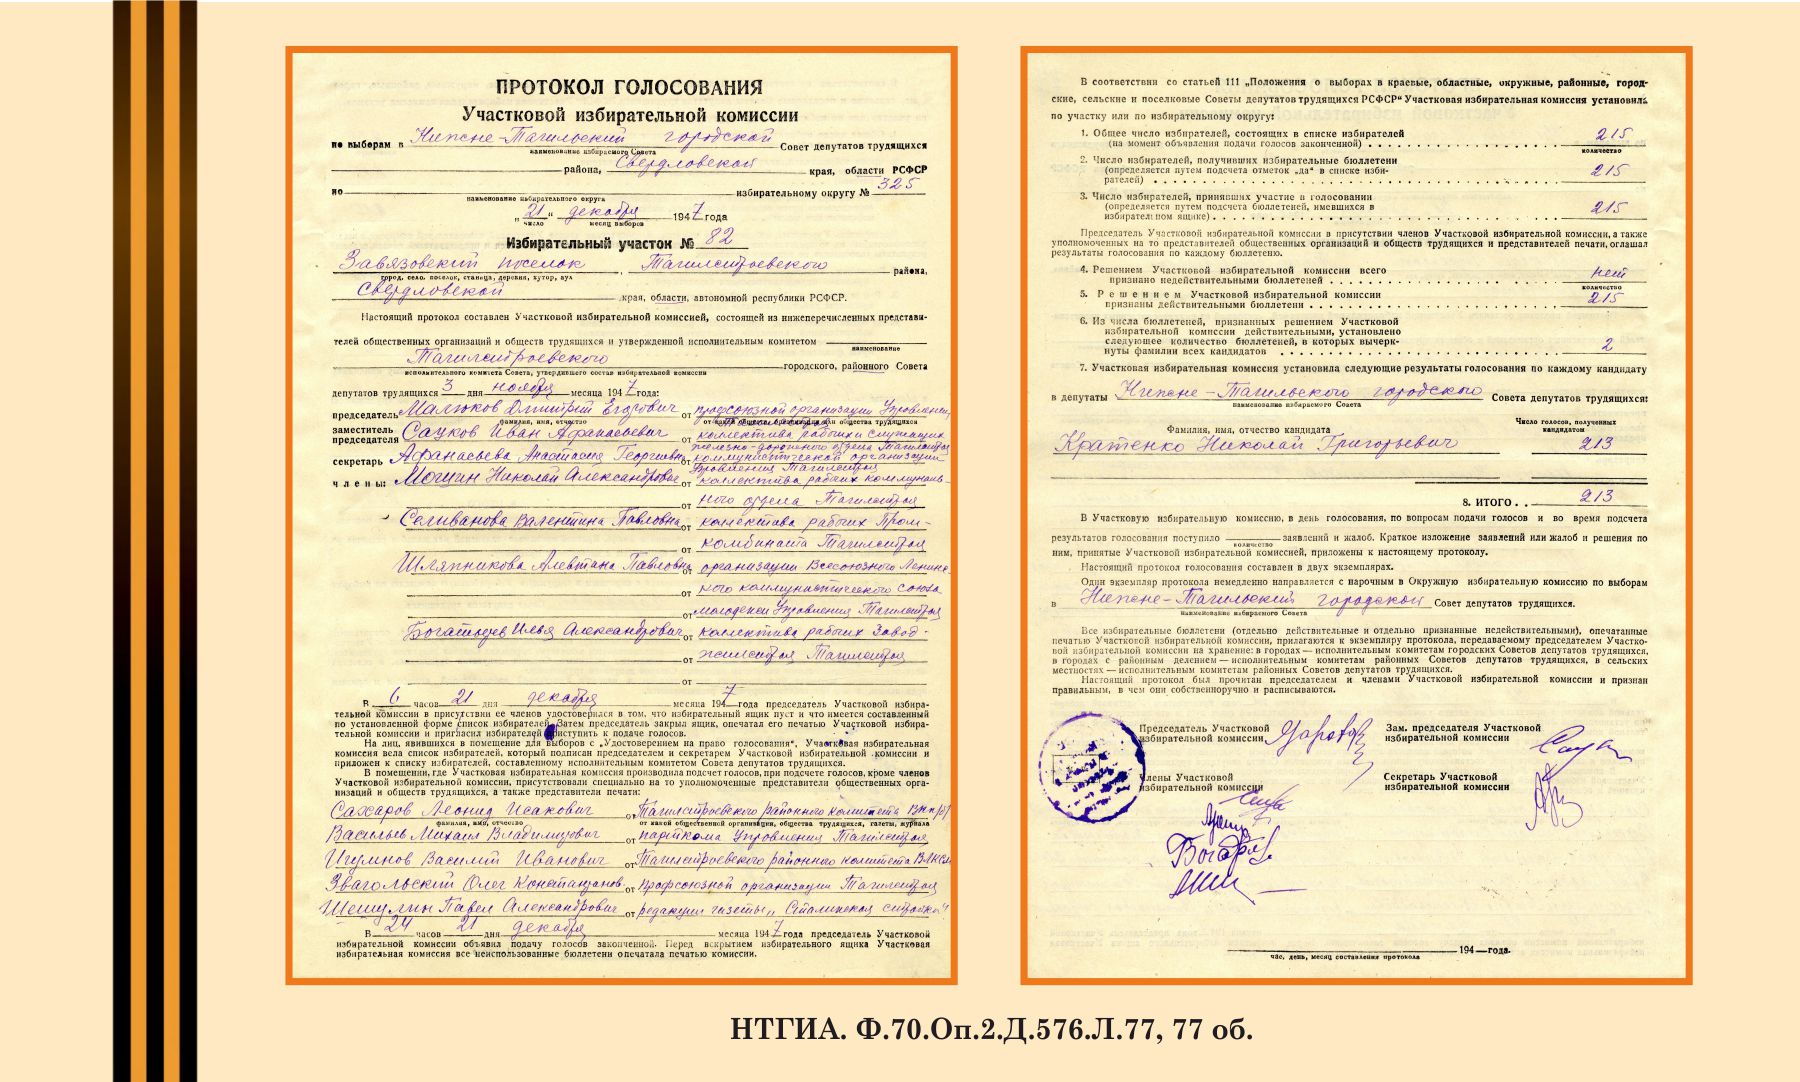 ПРОТОКОЛ ГОЛОСОВАНИЯ
Участковой избирательной комиссии
по выборам в Нижне-Тагильский городской Совет депутатов трудящихся
наименование избираемого Совета
района, Свердловской края, области РСФР
по избирательному округу № 325
наименование избирательного округа
„21“ декабря 1947 года
число месяц выборов
Избирательный участок № 82
Завязовский поселок, Тагилстроевского района,
город, село, поселок, станица, деревня, хутор, аул
Свердловской края, области, автономной республики РСФСР.
Настоящий протокол составлен Участковой избирательной комиссией, состоящей из нижеперечисленных представи-
телей общественных организаций и обществ трудящихся и утвержденной исполнительным комитетом
наименование
Тагилстроевского городского, районного Совета
исполнительного комитета Совета, утвердившего состав избирательной комиссии
депутатов трудящихся 3 дня ноября месяца 1947 года:
председатель Малюков Дмитрий Егорович от профсоюзной организации Управлени,
фамилия, имя, отчество от какой общественной организации или общества трудящихся
заместитель председателя Сацков Иван Афанасьевич от коллектива рабочих и служащих
железно-дорожного отдела Тагилстроя
секретарь Афанасьева Анастасия Георгиевна от коммунистической организации
Управления Тагилстроя
члены: Мошин Николай Александрович от коллектива рабочих коммуналь-
от ного отдела Тагилстроя
Селиванова Валентина Павловна от коллектива рабочих Пром-
от комбината Тагилстроя
Шляпникова Алевтина Павловна от организации Всесоюзного Ленинс-
от кого коммунистического союза
от молодежи Управления Тагилстроя
Богатырев Илья Александрович от коллектива рабочих Завод-
от жилстроя Тагилстроя
от
В 6 часов 21 дня декабря месяца 1947 года председатель Участковой избира-
тельной комиссии в присутствии ее членов удостоверился в том, что избирательный ящик пуст и что имеется составленный
по установленной форме список избирателей. Затем председатель закрыл ящик, опечатал его печатью Участковой избира-
тельной комиссии и пригласил избирателей приступить к подаче голосов.
На лиц, явившихся в помещение для выборов с „Удостоверением на право голосования“, Участковая избирательная
комиссия вела список избирателей, который подписан председателем и секретарем Участковой избирательной комиссии и
приложен к списку избирателей, составленному исполнительным комитетом Совета депутатов трудящихся.
В помещении, где Участковая избирательная комиссия производила подсчет голосов, при подсчете голосов, кроме членов
Участковой избирательной комиссии, присутствовали специально на то уполномоченные представители общественных орга-
низаций и обществ трудящихся, а также представители печати:
Сахаров Леонид Исакович от Тагилстроевского районного комитета ВКП/б/
фамилия, имя, отчество от какой общественной организации, общества трудящихся, газеты, журнала
Васильев Михаил Владимирович от парткома Управления Тагилстроя
Игумнов Василий Иванович от Тагилстроевского районного комитета ВЛКСМ
Звагольский Олег Константинов. от профсоюзной организации Тагилстроя
Шешулин Павел Александрович от редакции газеты „Сталинская стройка“
В 24 часов 21 дня декабря месяца 1947 года председатель Участковой
избирательной комиссии объявил подачу голосов законченной. Перед вскрытием избирательного ящика Участковая
избирательная комиссия все неиспользованные бюллетени опечатала печатью комиссии.
В соответствии со статьей 111 „Положения о выборах в краевые, областные, окружные, районные, город-
ские, сельские и поселковые Советы депутатов трудящихся РСФСР“ Участковая избирательная комиссия установила
по участку или по избирательному округу:
1. Общее число избирателей, состоящих в списке избирателей
(на момент объявления подачи голосов законченной) 215
количество
2. Число избирателей, получивших избирательные бюллетени
(определяется путем подсчета отметок „да“ в списке изби-
рателей) 215
3. Число избирателей, принявших участие в голосовании
(определяется путем подсчета бюллетеней, имевшихся в
избирательном ящике) 215
Председатель Участковой избирательной комиссии в присутствии членов Участковой избирательной комиссии, а также
уполномоченных на то представителей общественных организаций и обществ трудящихся и представителей печати, оглашал
результаты голосования по каждому бюллетеню.
4. Решением Участковой избирательной комиссии всего
признано недействительными бюллетеней нет
количество
5. Решением Участковой избирательной комиссии
признаны действительными бюллетени 215
6. Из числа бюллетеней, признанных решением Участковой
избирательной комиссии действительными, установлено
следующее количество бюллетеней, в которых вычерк-
нуты фамилии всех кандидатов 2
7. Участковая избирательная комиссия установила следующие результаты голосования по каждому кандидату
в депутаты Нижне-Тагильского городского Совета депутатов трудящихся:
наименование избираемого Совета
Фамилия, имя, отчество кандидата Число голосов, полученных кандидатом
Кратенко Николай Григорьевич 213
8. ИТОГО . . 213
В Участковую избирательную комиссию, в день голосования, по вопросам подачи голосов и во время подсчета
результатов голосования поступило заявлений и жалоб. Краткое изложение заявлений или жалоб и решения по
количество
ним, принятые Участковой избирательной комиссией, приложены к настоящему протоколу.
Настоящий протокол голосования составлен в двух экземплярах.
Один экземпляр протокола немедленно направляется с нарочным в Окружную избирательную комиссию по выборам
в Нижне-Тагильский городской Совет депутатов трудящихся.
наименование избираемого Совета
Все избирательные бюллетени (отдельно действительные и отдельно признанные недействительными), опечатанные
печатью Участковой избирательной комиссии, прилагаются к экземпляру протокола, передаваемому председателем Участко-
вой избирательной комиссии на хранение: в городах — исполнительным комитетам городских Советов депутатов трудящихся,
в городах с районным делением — исполнительным комитетам районных Советов депутатов трудящихся, в сельских
местностях — исполнительным комитетам районных Советов депутатов трудящихся.
Настоящий протокол был прочитан председателем и членами Участковой избирательной комиссии и признан
правильным, в чем они собственноручно и расписываются.
Председатель Участковой избирательной комиссии,
Зам. председателя Участковой избирательной комиссии
Члены Участковой избирательной комиссии
Секретарь Участковой избирательной комиссии
194 года.
час, день, месяц составления протокола
НТГИА. Ф.70.Оп.2.Д.576.Л.77, 77 об.